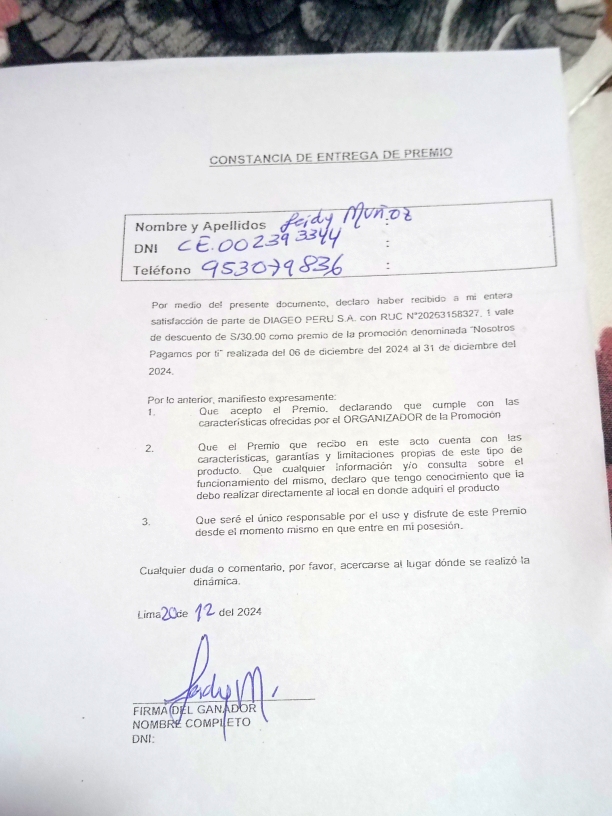 CONSTANCIA DE ENTREGA DE PREMIO
Nombre y Apellidos Leidy Muñoz :
DNI CE.002393344 :
Teléfono 953079836 :
Por medio del presente documento, declaro haber recibido a mi entera
satisfacción de parte de DIAGEO PERU S.A. con RUC N°20263158327, 1 vale
de descuento de S/30.00 como premio de la promoción denominada "Nosotros
Pagamos por ti" realizada del 06 de diciembre del 2024 al 31 de diciembre del
2024.
Por lo anterior, manifiesto expresamente:
1. Que acepto el Premio, declarando que cumple con las
características ofrecidas por el ORGANIZADOR de la Promoción
2. Que el Premio que recibo en este acto cuenta con las
características, garantías y limitaciones propias de este tipo de
producto. Que cualquier información y/o consulta sobre el
funcionamiento del mismo, declaro que tengo conocimiento que la
debo realizar directamente al local en donde adquirí el producto
3. Que seré el único responsable por el uso y disfrute de este Premio
desde el momento mismo en que entre en mi posesión.
Cualquier duda o comentario, por favor, acercarse al lugar dónde se realizó la
dinámica.
Lima 20 de 12 del 2024
Leidy M.
FIRMA DEL GANADOR
NOMBRE COMPLETO
DNI: